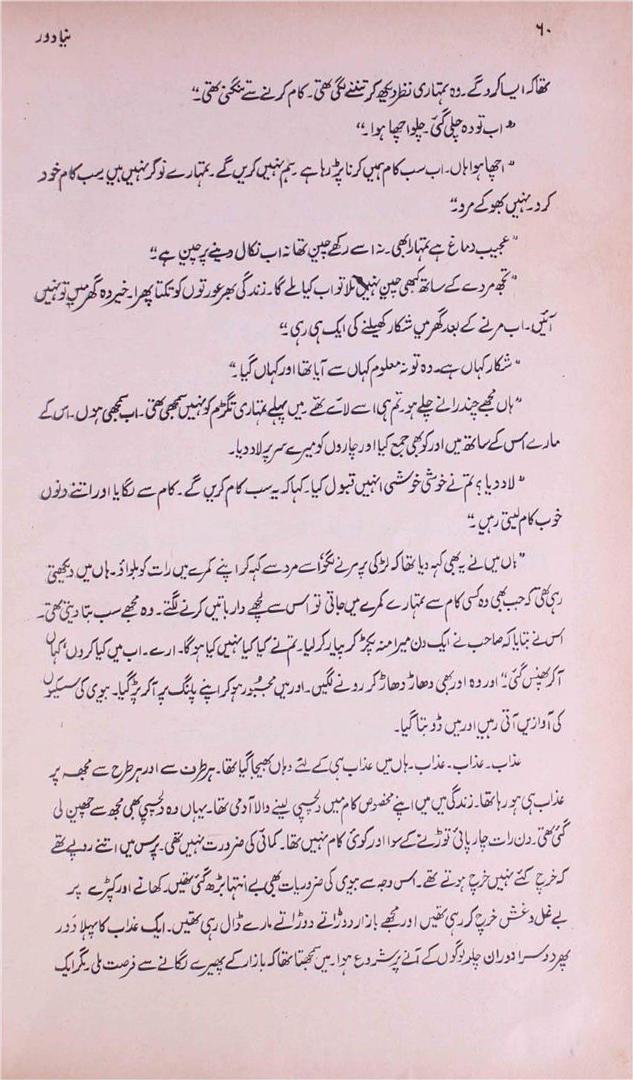 ۶۰
نیا دور
تھا کہ ایسا کر دگے۔ وہ تمہاری نظر دیکھ کر تننے لگی تھی۔ کام کرنے سے تنکنی تھی۔“
”اب تو وہ چلی گئی۔ چلو اچھا ہوا۔“
”اچھا ہوا ہاں۔ اب سب کام ہمیں کرنا پڑ رہا ہے۔ ہم نہیں کریں گے۔ تمہارے نوکر نہیں ہیں سب کام خود
کرو۔ نہیں بھوکے مرو۔“
”عجیب دماغ ہے تمہارا بھی۔ نہ اسے رکھے چین تھا نہ اب نکال دینے پر چین ہے۔“
”تجھ مردے کے ساتھ کبھی چین نہیں ملا تو اب کیا ملے گا۔ زندگی بھر عورتوں کو تکتا پھرا۔ خیر وہ گھر میں تو نہیں
آئیں۔ اب مرنے کے بعد گھر میں شکار کھیلنے کی ایک ہی رہی۔“
”شکار کہاں ہے۔ وہ تو نہ معلوم کہاں سے آیا تھا اور کہاں گیا۔“
”ہاں مجھے چندرانے چلے ہو۔ تم ہی اسے لائے تھے۔ میں پہلے تمہاری تگڑم کو نہیں سمجھی تھی۔ اب سمجھی ہوں۔ اس کے
مارے اس کے ساتھ میں اور کو بھی جمع کیا اور چاروں کو میرے سر پر لاد دیا۔
”لاد دیا؟ تم نے خوشی خوشی انہیں قبول کیا۔ کہا کہ یہ سب کام کریں گے۔ کام سے لگایا اور اتنے دنوں
خوب کام لیتی رہیں۔“
”ہاں میں نے یہ بھی کہہ دیا تھا کہ لڑکی پر مرنے لگو اسے مرد سے کہہ کر اپنے کمرے میں رات کو بلواؤ۔ ہاں میں دیکھتی
رہی تھی کہ جب بھی وہ کسی کام سے تمہارے کمرے میں جاتی تو اس سے لچھے دار باتیں کرنے لگتے۔ وہ مجھے سب بتا دیتی تھی۔
اس نے بتایا کہ صاحب نے ایک دن میرا منہ پکڑ کر پیار کر لیا۔ تم نے کیا کیا نہیں کیا ہوگا۔ ارے۔ اب میں کیا کروں‘ کہاں
آ کر پھنس گئی“ اور وہ اور بھی دھاڑ دھاڑ کر رونے لگیں۔ اور میں مجبور ہو کر اپنے پلنگ پر آ کر پڑ گیا۔ بیوی کی سسکیوں
کی آوازیں آتی رہیں اور میں ڈوبتا گیا۔
عذاب۔ عذاب۔ عذاب۔ ہاں میں عذاب ہی کے لئے وہاں بھیجا گیا تھا۔ ہر طرف سے اور ہر طرح سے مجھ پر
عذاب ہی ہو رہا تھا۔ زندگی میں میں اپنے مخصوص کام میں دلچسپی لینے والا آدمی تھا۔ یہاں وہ دلچسپی بھی مجھ سے چھین لی
گئی تھی۔ دن رات چارپائی توڑنے کے سوا اور کوئی کام نہیں تھا۔ کمائی کی ضرورت نہیں تھی۔ پرس میں اتنے روپے تھے
کہ خرچ کئے نہیں خرچ ہوتے تھے۔ اس وجہ سے بیوی کی ضروریات بھی بے انتہا بڑھ گئی تھیں۔ کھانے اور کپڑے پر
بے غل و غش خرچ کر رہی تھیں اور مجھے بازار دوڑاتے دوڑاتے مارے ڈال رہی تھیں۔ ایک عذاب کا پہلا دور
پھر دوسرا دور ان چلد لوگوں کے آنے پر شروع ہوا۔ میں سمجھتا تھا کہ بازار کے پھیرے لگانے سے فرصت ملی۔ مگر ایک